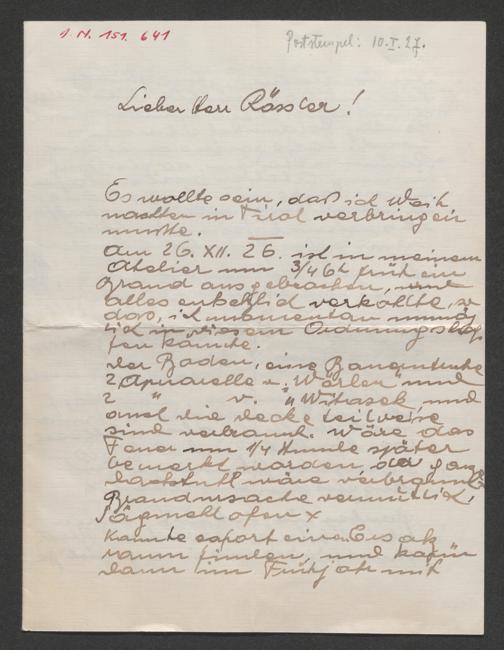 I. N. 151. 641
Poststempel: 10.I.27.
Lieber Herr Rössler!
Es wollte sein, daß ich Weih
nachten in Tirol verbringen
musste.
Am 26. XII. 26. ist in meinem
Atelier um 3/4 6h früh ein
Brand ausgebrochen, und
alles entsetzlich verkohlte, so
dass, ich momentan unmög
lich in diesem Ordnung
fen konnte.
Der Boden, eine Bauerntruhe
2 Aquarelle v. Wörlen und
2 " v. " Witasek und
auch die Decke teilweise
sind verbrannt. Wäre das
Feuer um 1/4 Stunde später
bemerkt worden, der ganze
Dachstuhl wäre verbrannt
Brandursache vermutlich,
Sägmehlofen x
Konnte sofort einen Ersatz
raum finden, und kann
dann im Frühjahr mit